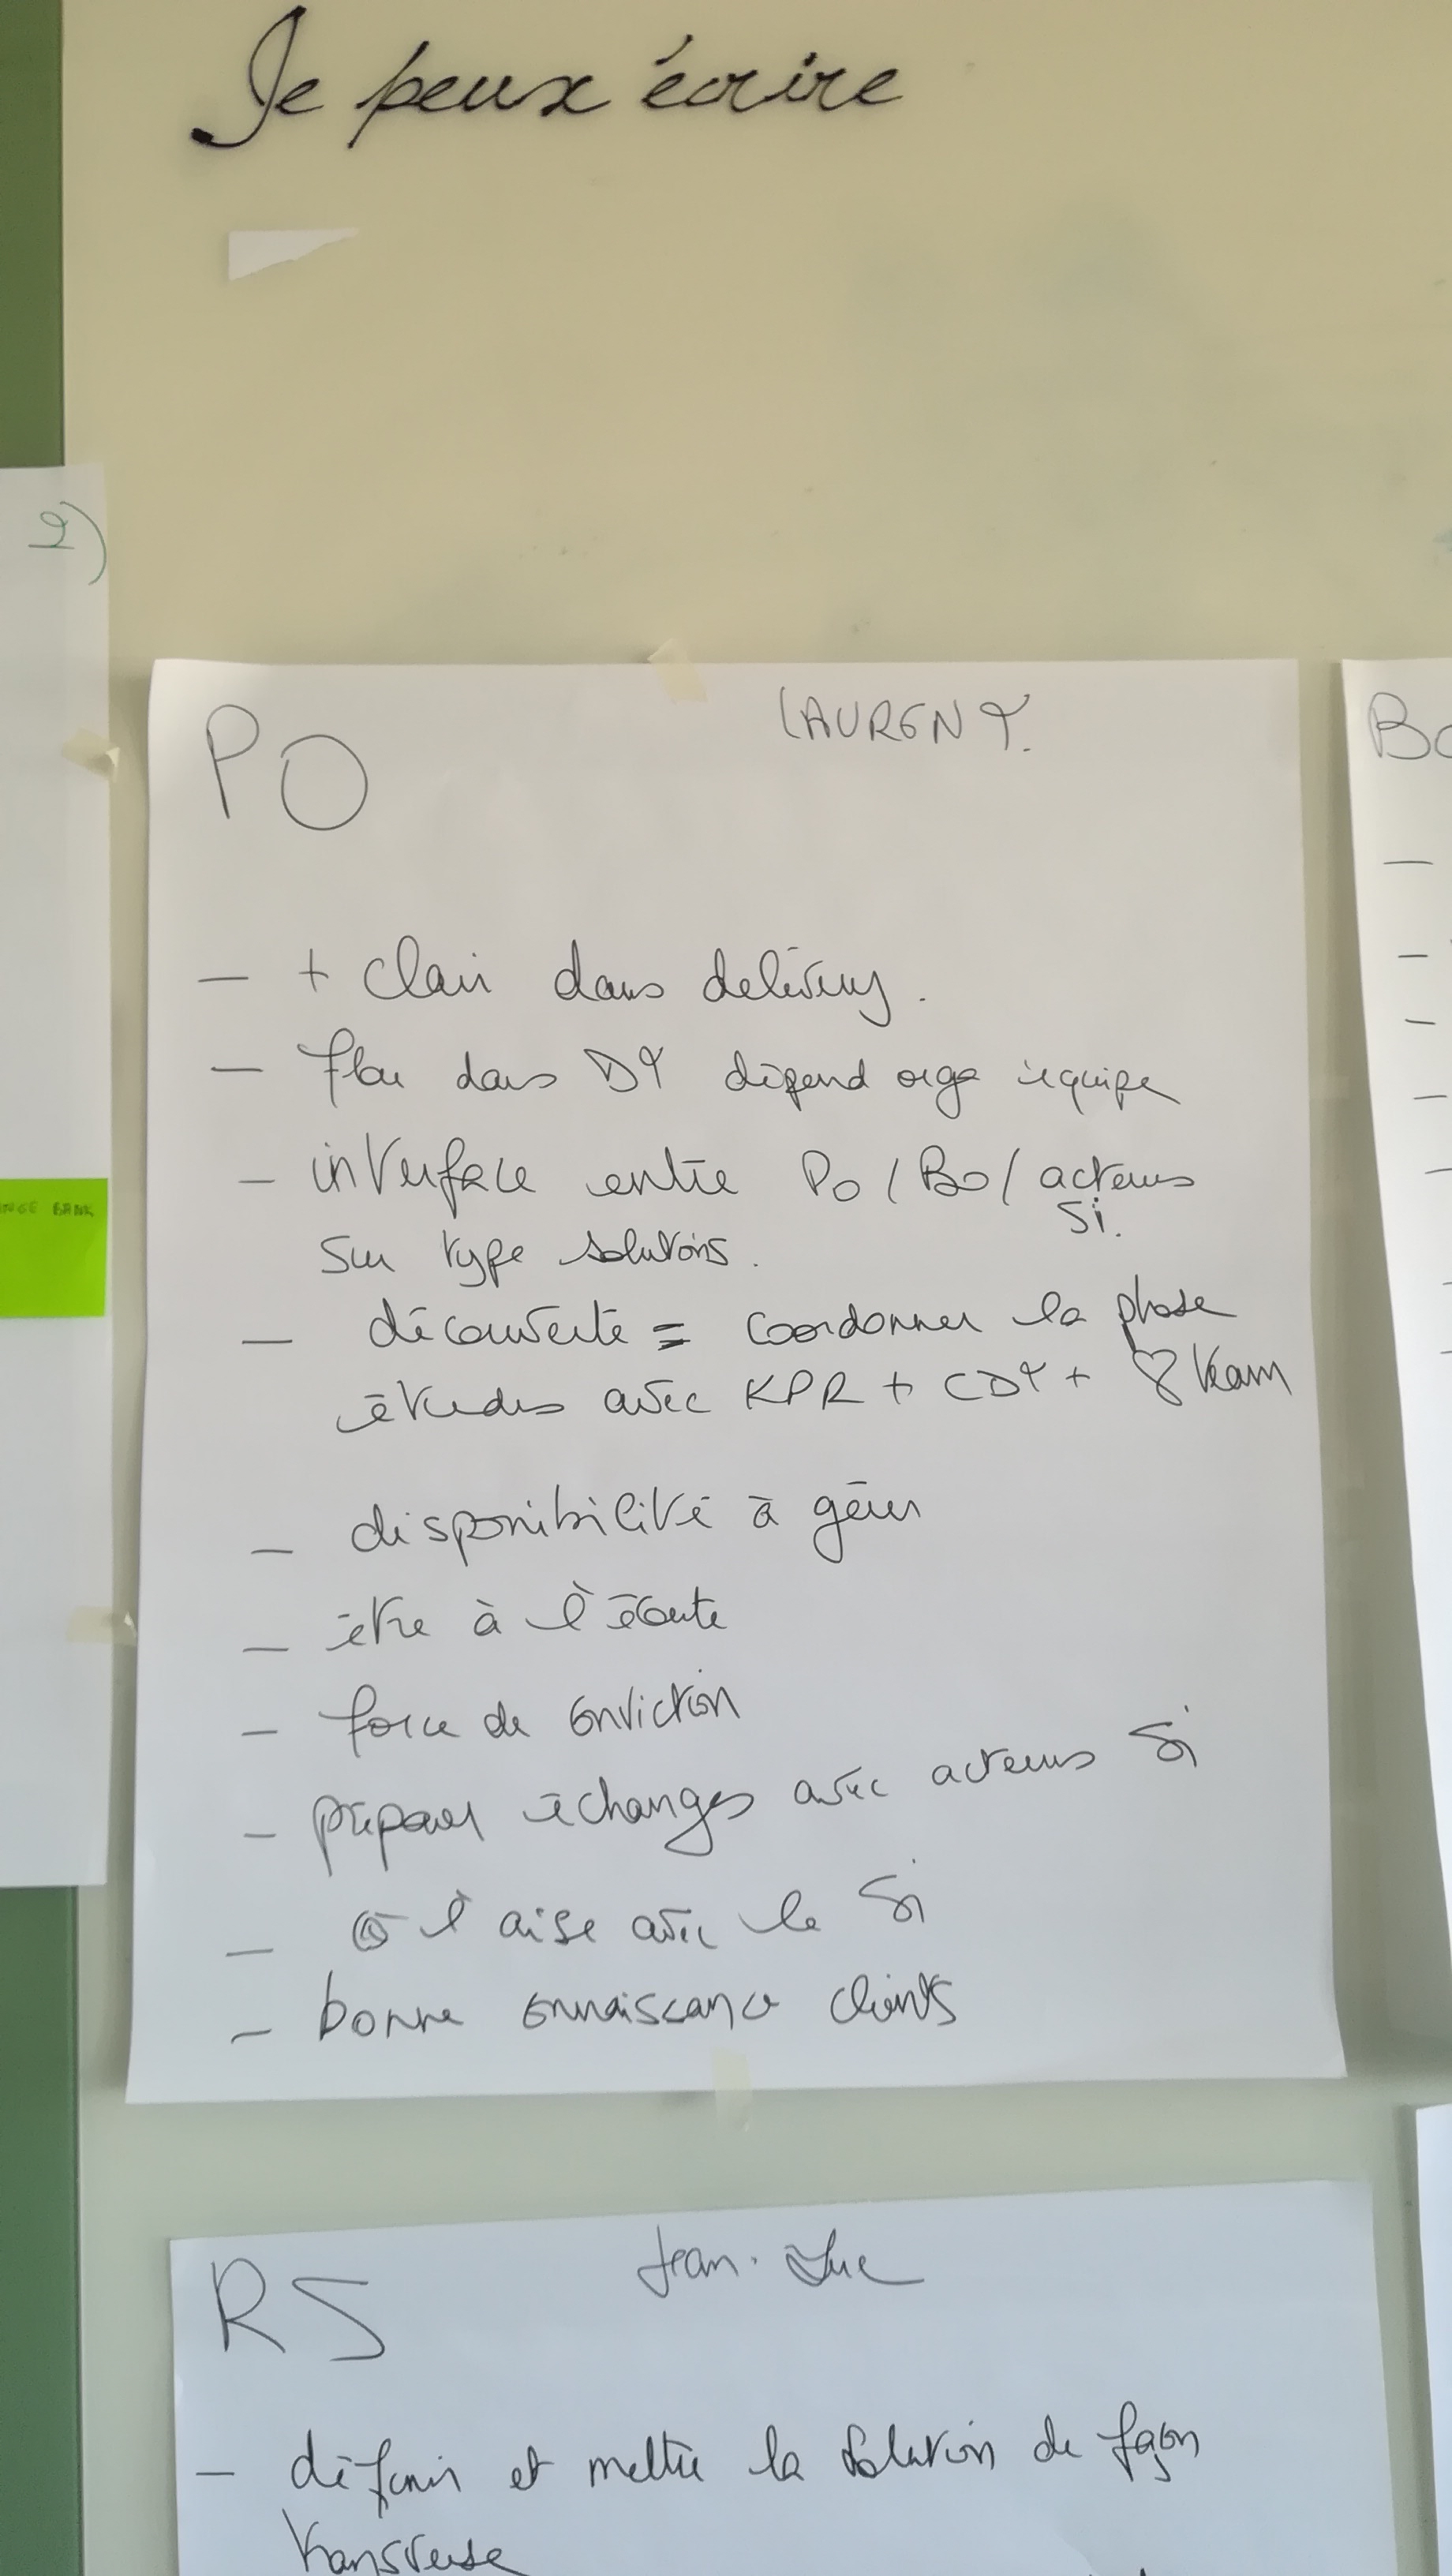 Je peux écrire
2)
NGE BANK
PO
LAURENT.
— + clair dans delivery.
— flou dans DT dépend orga équipe
— interface entre PO / BO / acteurs
SI.
sur type solutions.
— découverte = coordonner la phase
études avec KPR + CDT + ♡ team
— disponibilité à gérer
— être à l'écoute
— force de conviction
— préparer échanges avec acteurs SI
— à l'aise avec le SI
— bonne connaissance clients
BO
RS
Jean-Luc
— définir et mettre la solution de façon
transverse